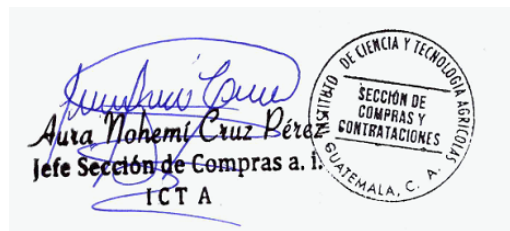 Aura Nohemí Cruz Pérez
Jefe Sección de Compras a. i.
ICTA
INSTITUTO DE CIENCIA Y TECNOLOGIA AGRICOLAS
SECCIÓN DE
COMPRAS Y
CONTRATACIONES
GUATEMALA, C. A.